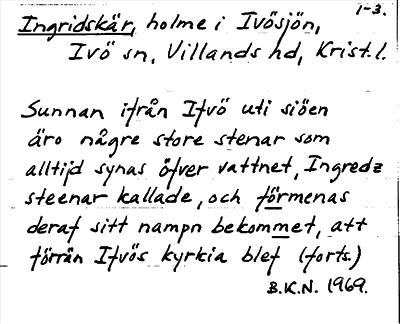 1-3.
Ingridskär, holme i Ivösjön,
Ivö sn, Villands hd, Krist. l.
Sunnan ifrån Ifvö uti siöen
äro någre store stenar som
alltijd synas öfver vattnet, Ingredz
steenar kallade, och förmenas
deraf sitt nampn bekommet, att
förrän Ifvös kyrkia blef (forts.)
B.K.N. 1969.